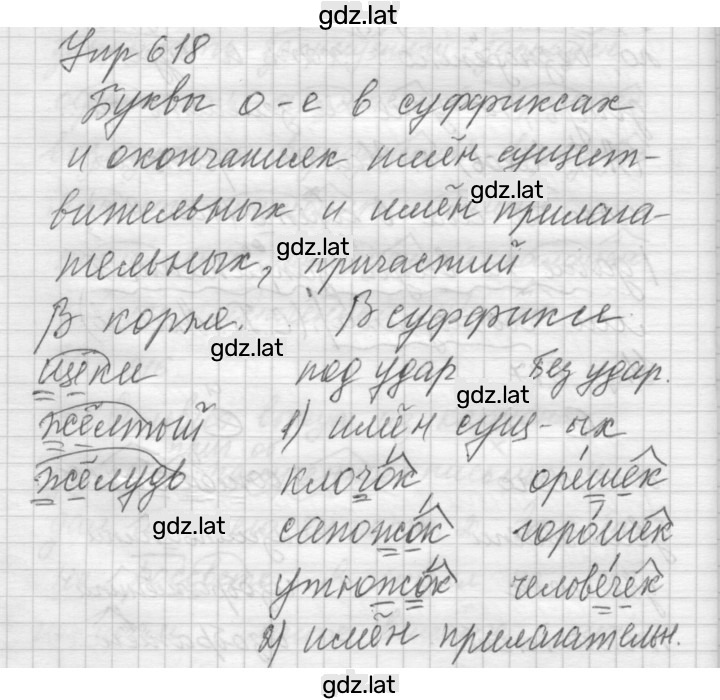 gdz.lat
Упр 618
Буквы о-е в суффиксах
и окончаниях имён сущест-
gdz.lat
вительных и имён прилага-
gdz.lat
тельных, причастий
В корне. В суффиксе.
gdz.lat
щёки под удар Без удар.
gdz.lat
жёлтый 1) имён сущ-ых
жёлудь клочо́к оре́шек
gdz.lat
сапожо́к горо́шек
утюжо́к челове́чек
2) имён прилагательн.
gdz.lat